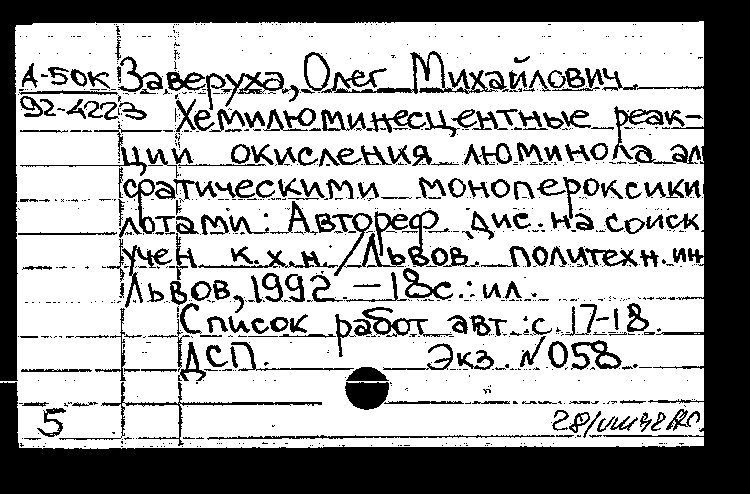 А-50к Заверуха, Олег Михайлович.
92-4223 Хемилюминесцентные реак-
ции окисления люминола али
фатическими монопероксики
лотами: Автореф. дис. на соиск
учен к.х.н. /Львов. политехн. ин
Львов, 1992. – 18с.: ил.
Список работ авт.: с. 17-18.
ДСП. Экз. №058.
5